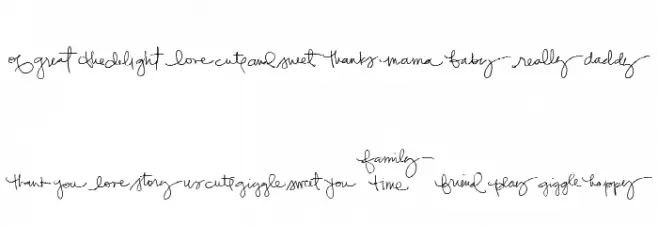 of great the delight love cute and sweet thanks mama baby really daddy
family
thank you love story us cute giggle sweet you time friend play giggle happy